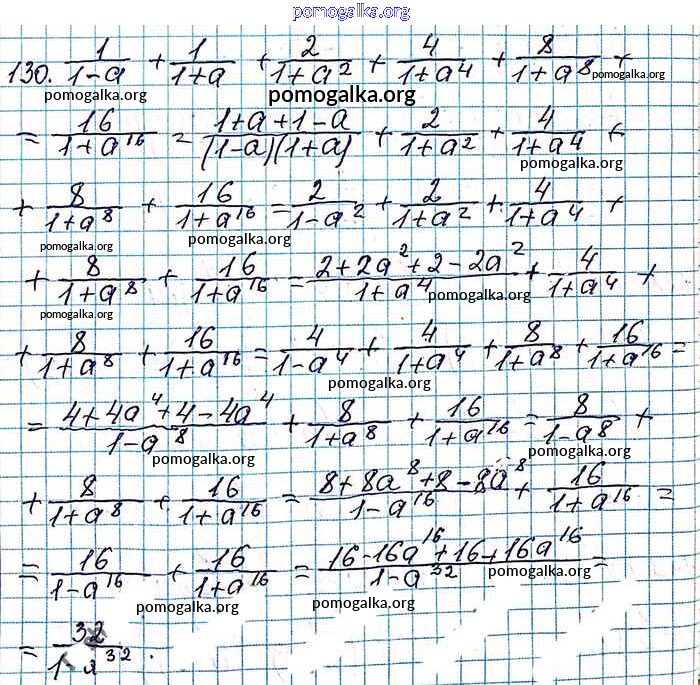 pomogalka.org
130. 1/(1-a) + 1/(1+a) + 2/(1+a²) + 4/(1+a⁴) + 8/(1+a⁸) +
pomogalka.org pomogalka.org pomogalka.org
= 16/(1+a¹⁶) = (1+a+1-a)/((1-a)(1+a)) + 2/(1+a²) + 4/(1+a⁴) +
pomogalka.org pomogalka.org
+ 8/(1+a⁸) + 16/(1+a¹⁶) = 2/(1-a²) + 2/(1+a²) + 4/(1+a⁴) +
pomogalka.org pomogalka.org
+ 8/(1+a⁸) + 16/(1+a¹⁶) = (2+2a²+2-2a²)/(1+a⁴) + 4/(1+a⁴) +
pomogalka.org pomogalka.org
+ 8/(1+a⁸) + 16/(1+a¹⁶) = 4/(1-a⁴) + 4/(1+a⁴) + 8/(1+a⁸) + 16/(1+a¹⁶) =
pomogalka.org
= (4+4a⁴+4-4a⁴)/(1-a⁸) + 8/(1+a⁸) + 16/(1+a¹⁶) = 8/(1-a⁸) +
pomogalka.org pomogalka.org
+ 8/(1+a⁸) + 16/(1+a¹⁶) = (8+8a⁸+8-8a⁸)/(1-a¹⁶) + 16/(1+a¹⁶) =
pomogalka.org pomogalka.org
= 16/(1-a¹⁶) + 16/(1+a¹⁶) = (16-16a¹⁶+16+16a¹⁶)/(1-a³²) =
pomogalka.org pomogalka.org pomogalka.org
= 32/(1-a³²).